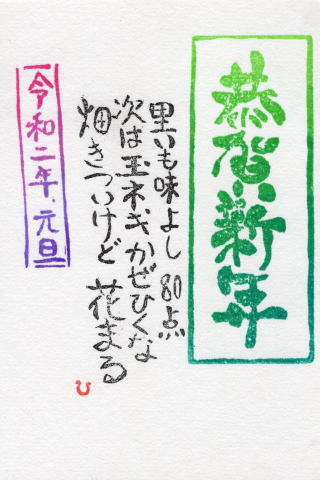 恭賀新年
里いも味よし 80点
次は玉ネギかぜひくな
畑きついけど 花まる
令和二年.元旦
ひ